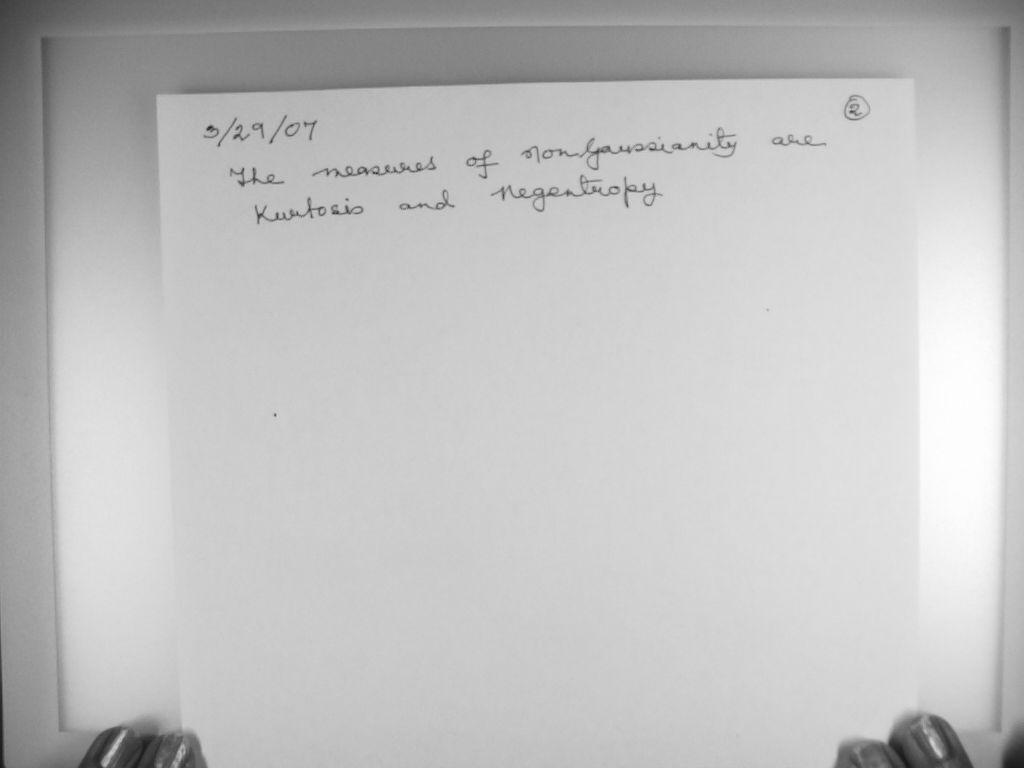 3/29/07
2
The measures of nonGaussianity are
Kurtosis and Negentropy